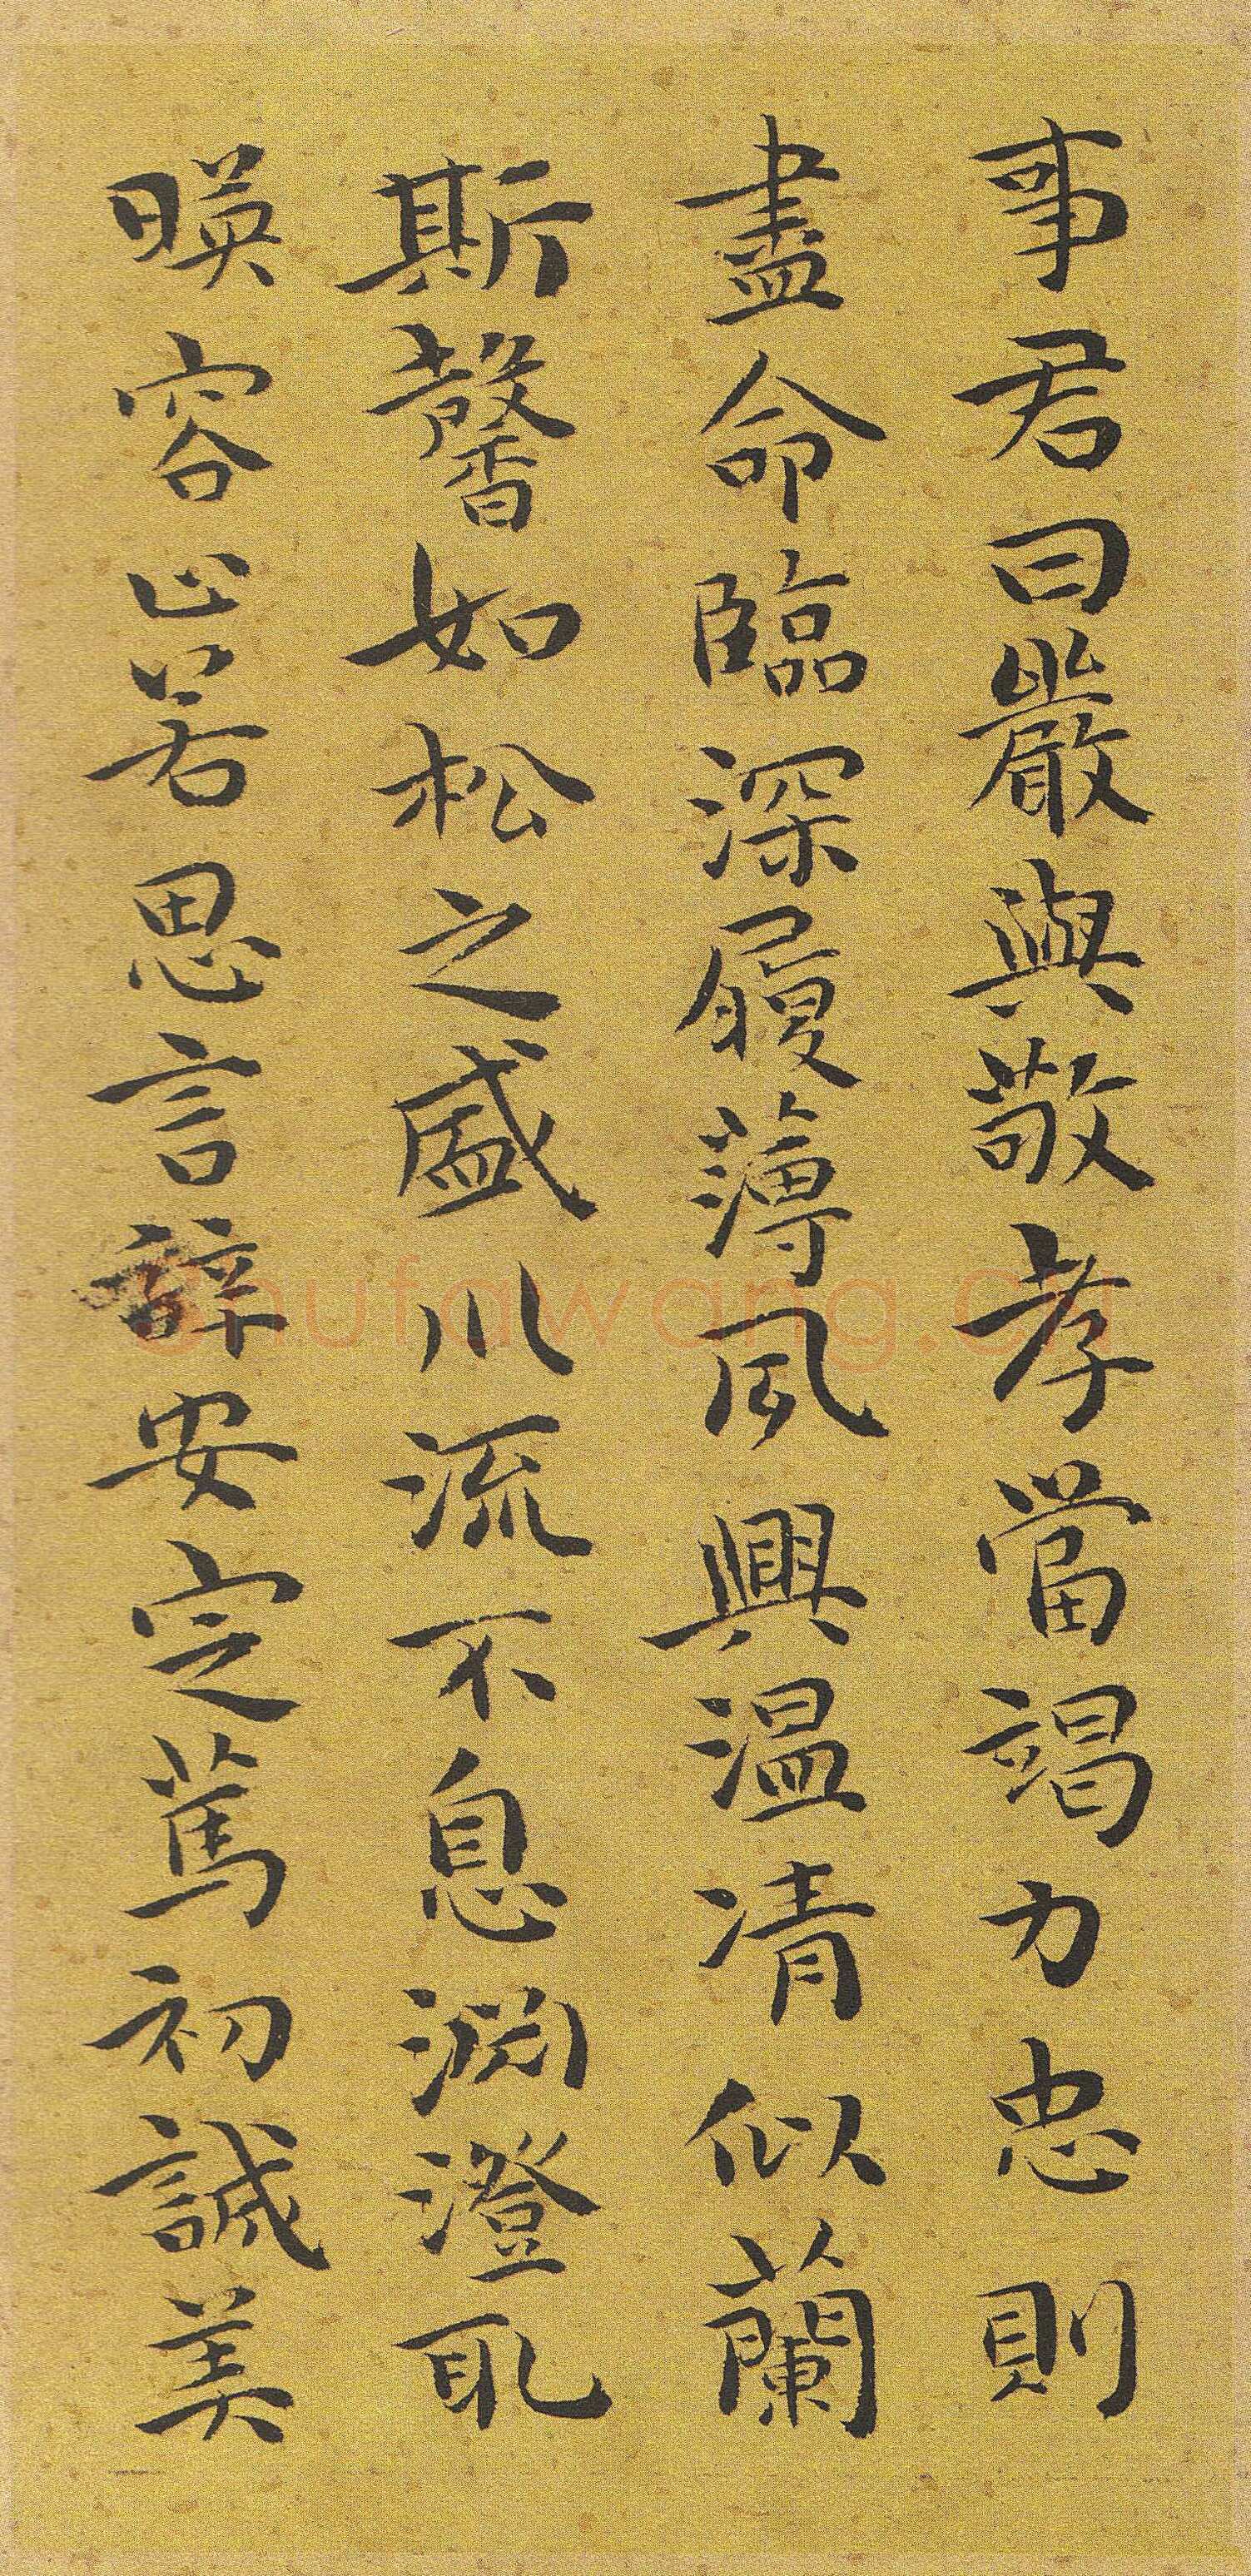 事君曰嚴與敬孝當竭力忠則
盡命臨深履薄夙興溫凊似蘭
斯馨如松之盛川流不息淵澄取
暎容止若思言辭安定篤初誠美
shufawang.cn